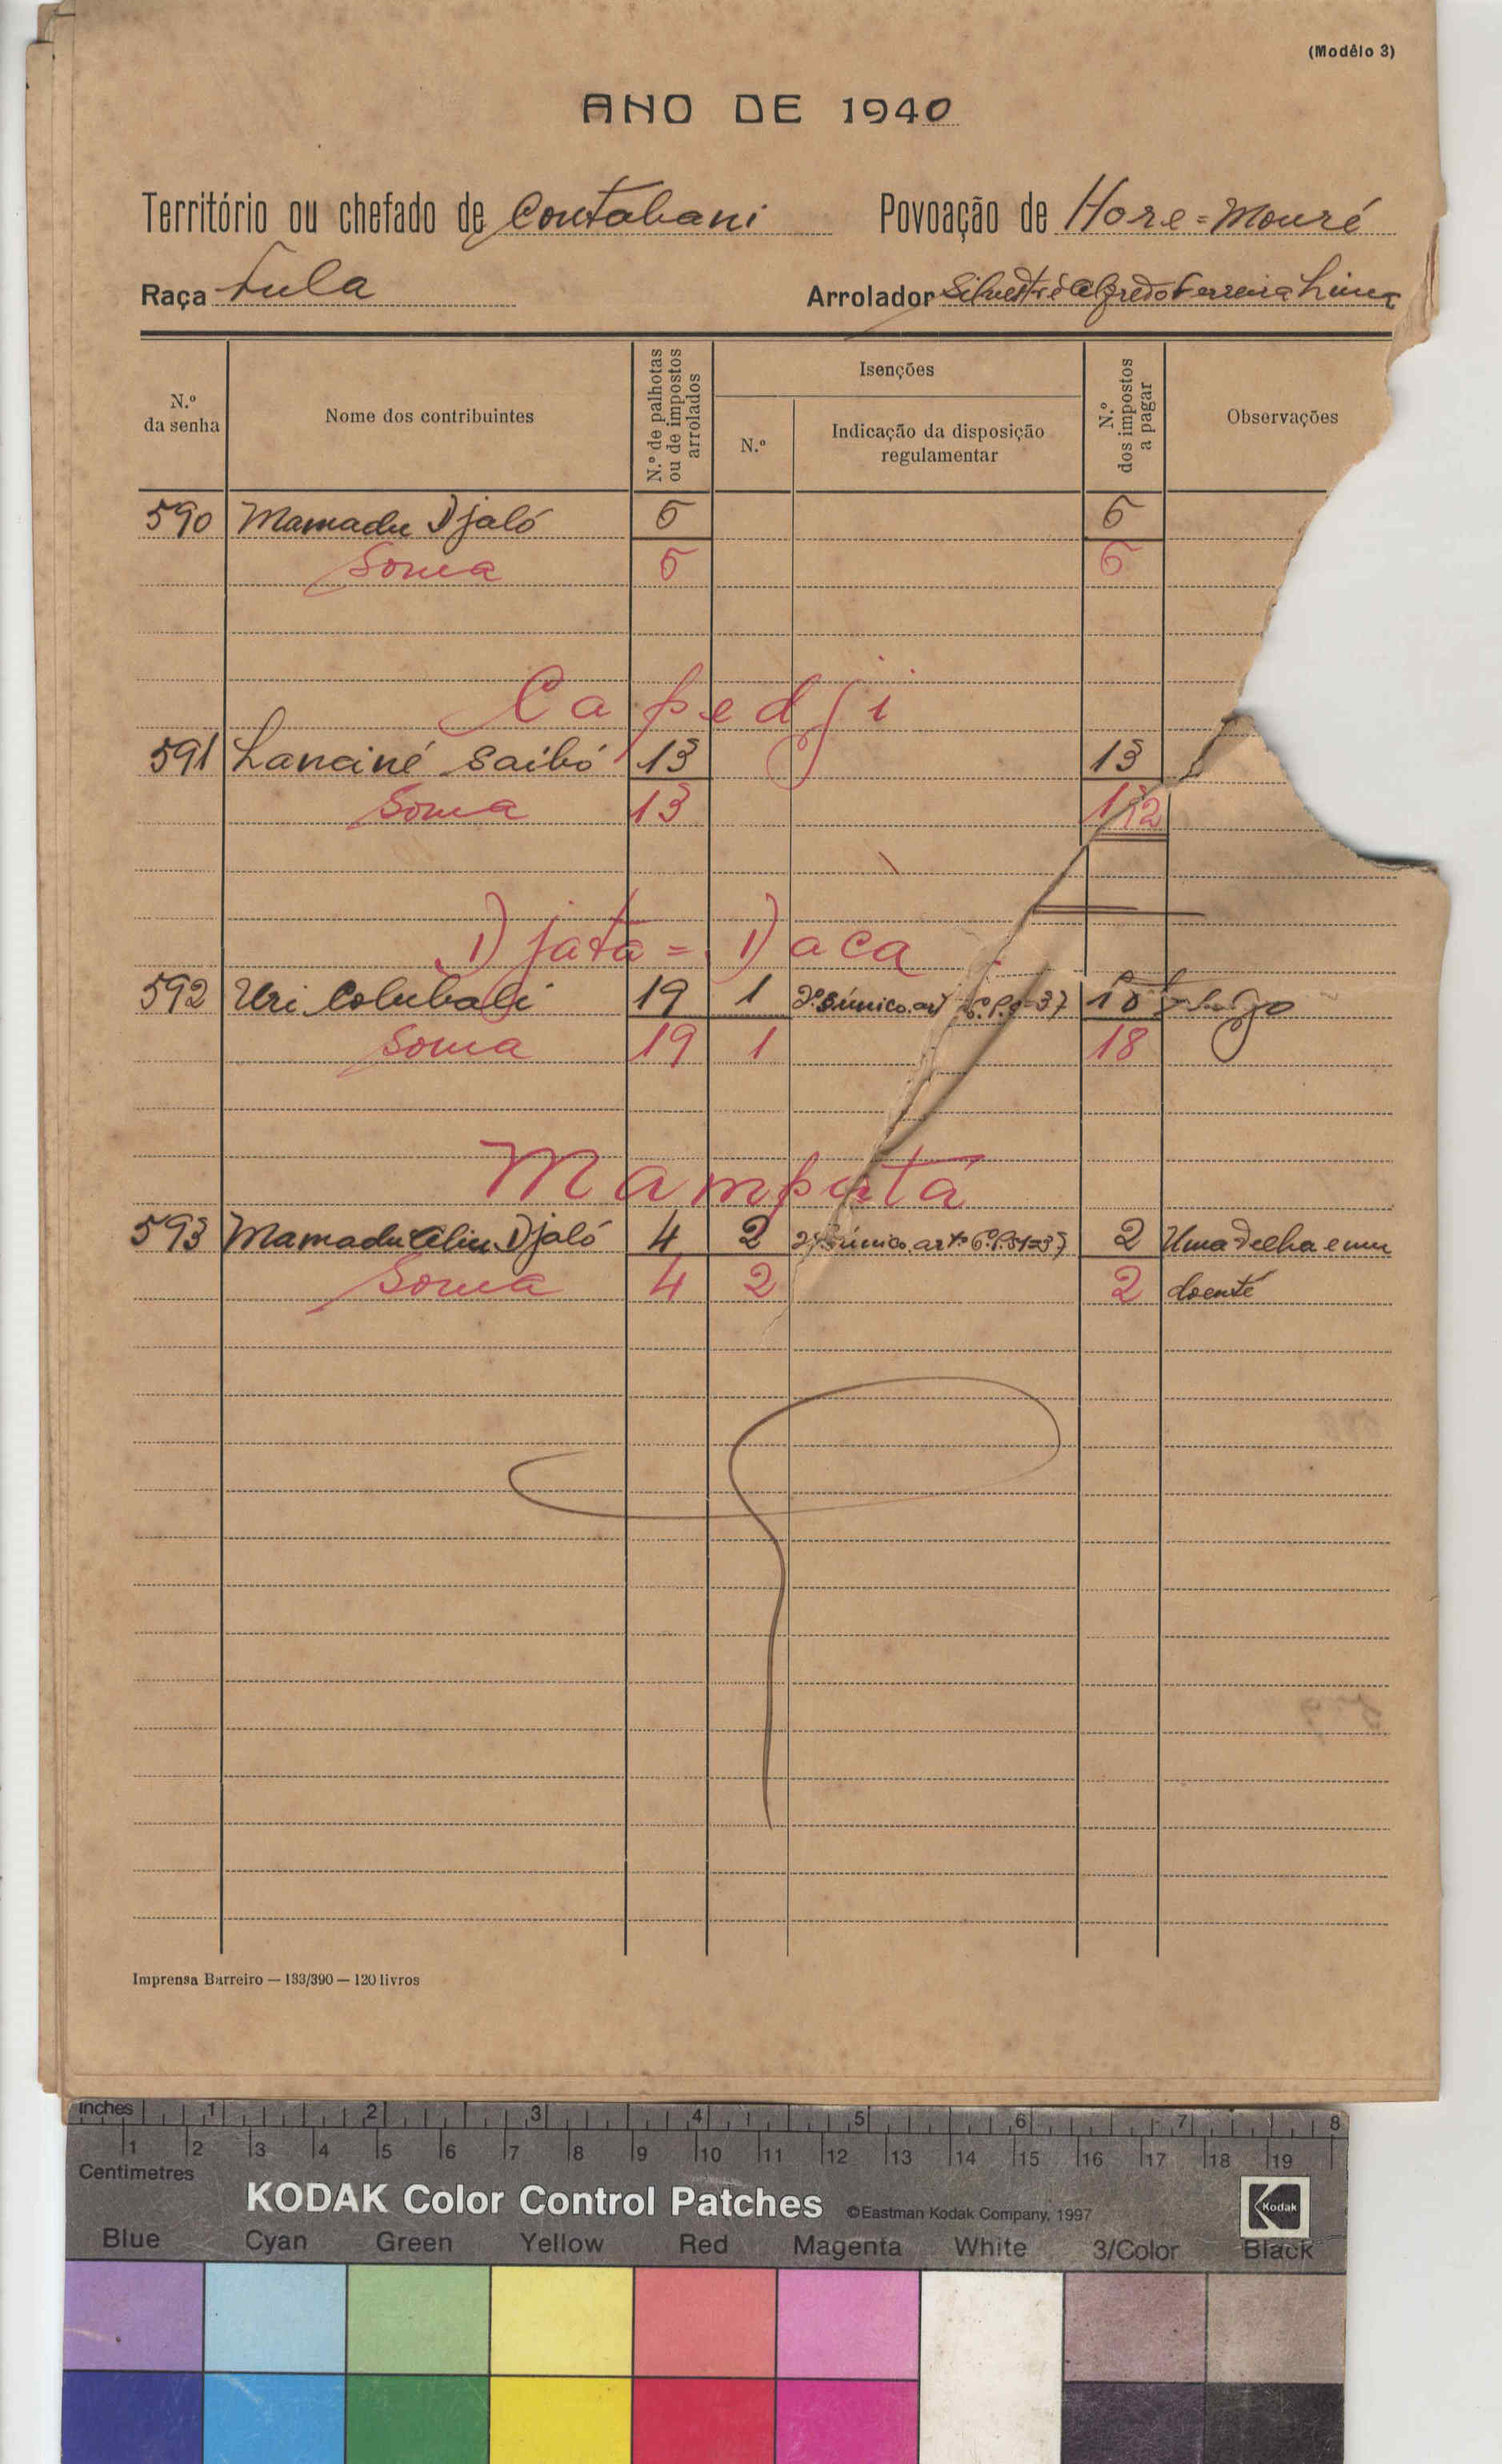 (Modêlo 3)
ANO DE 1940
Território ou chefado de Contabani Povoação de Hore=Mouré
Raça Fula Arrolador Silvestre Alfredo Ferreira Lima
N.º da senha
Nome dos contribuintes
N.º de palhotas ou de impostos arrolados
Isenções
N.º
Indicação da disposição regulamentar
N.º dos impostos a pagar
Observações
590 Mamadu Djaló 5 5
Soma 5 5
Capedji
591 Lanciné Saibó 13 13
Soma 13
Djata=Daca
592 Uri Colubali 19 1 único art 37 18
Soma 19 1 18
Mampatá
593 Mamadu Aliu Djaló 4 2 único art.º 2 Uma velha e um
Soma 4 2 2 doente
Imprensa Barreiro — 133/390 — 120 livros
inches 1 2 3 4 5 6 7 8
1 2 3 4 5 6 7 8 9 10 11 12 13 14 15 16 17 18 19
Centimetres
KODAK Color Control Patches ©Eastman Kodak Company, 1997 Kodak
Blue Cyan Green Yellow Red Magenta White 3/Color Black